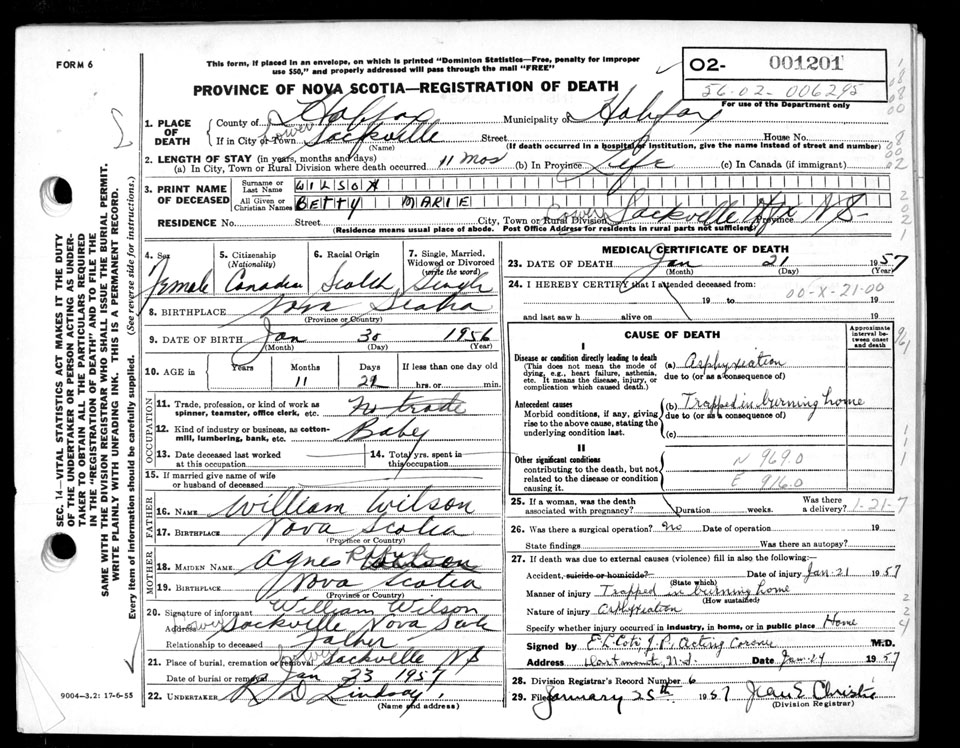 FORM 6
This form, if placed in an envelope, on which is printed "Dominion Statistics—Free, penalty for improper
use $50," and properly addressed will pass through the mail "FREE"
PROVINCE OF NOVA SCOTIA—REGISTRATION OF DEATH
O2- 001201
56-02-006295
For use of the Department only
1. PLACE OF DEATH
County of Halifax Municipality of Halifax
If in City or Town Lower Sackville Street House No.
(Name) (If death occurred in a hospital or institution, give the name instead of street and number)
2. LENGTH OF STAY (in years, months and days)
(a) In City, Town or Rural Division where death occurred 11 mos (b) In Province Life (c) In Canada (if immigrant)
3. PRINT NAME OF DECEASED
Surname or Last Name WILSON
All Given or Christian Names BETTY MARIE
RESIDENCE No. Street City, Town or Rural Division Lower Sackville Hfx Province NS-
(Residence means usual place of abode. Post Office Address for residents in rural parts not sufficient)
4. Sex Female
5. Citizenship (Nationality) Canadian
6. Racial Origin Scotch
7. Single, Married, Widowed or Divorced (write the word) Single
8. BIRTHPLACE Nova Scotia
(Province or Country)
9. DATE OF BIRTH Jan 30 1956
(Month) (Day) (Year)
10. AGE in Years Months 11 Days 21 If less than one day old hrs. or min.
OCCUPATION
11. Trade, profession, or kind of work as spinner, teamster, office clerk, etc. No trade
12. Kind of industry or business, as cotton-mill, lumbering, bank, etc. Baby
13. Date deceased last worked at this occupation
14. Total yrs. spent in this occupation
15. If married give name of wife or husband of deceased
FATHER
16. NAME William Wilson
17. BIRTHPLACE Nova Scotia
(Province or Country)
MOTHER
18. MAIDEN NAME Agnes
19. BIRTHPLACE Nova Scotia
(Province or Country)
20. Signature of informant William Wilson
Address Lower Sackville Nova Scotia
Relationship to deceased Father
21. Place of burial, cremation or removal Lower Sackville NS
Date of burial or removal Jan 23 1957
22. UNDERTAKER R D Lindsay
(Name and address)
MEDICAL CERTIFICATE OF DEATH
23. DATE OF DEATH Jan 21 1957
(Month) (Day) (Year)
24. I HEREBY CERTIFY that I attended deceased from:
19 to 19
00-X-21-00
and last saw h alive on 19
CAUSE OF DEATH
Approximate interval between onset and death
I
Disease or condition directly leading to death
(This does not mean the mode of dying, e.g., heart failure, asthenia, etc. It means the disease, injury, or complication which caused death.)
(a) Asphyxiation
due to (or as a consequence of)
Antecedent causes
Morbid conditions, if any, giving rise to the above cause, stating the underlying condition last.
(b) Trapped in burning home
due to (or as a consequence of)
(c)
II
Other significant conditions
contributing to the death, but not related to the disease or condition causing it.
N 969.0
E 916.0
25. If a woman, was the death associated with pregnancy? Duration weeks. Was there a delivery? 1-21-7
26. Was there a surgical operation? No Date of operation 19
State findings Was there an autopsy?
27. If death was due to external causes (violence) fill in also the following:—
Accident, suicide or homicide? Date of injury Jan-21 1957
(State which)
Manner of injury Trapped in burning home
(How sustained)
Nature of injury Asphyxiation
Specify whether injury occurred in industry, in home, or in public place Home
Signed by J.P. Acting Coroner M.D.
Address Dartmouth N.S. Date Jan-24 1957
28. Division Registrar's Record Number 6
29. Filed January 25th 1957 Jean E Christie
(Division Registrar)
SEC. 14—VITAL STATISTICS ACT MAKES IT THE DUTY
OF THE UNDERTAKER OR PERSON ACTING AS UNDER-
TAKER TO OBTAIN ALL THE PARTICULARS REQUIRED
IN THE "REGISTRATION OF DEATH" AND TO FILE THE
SAME WITH THE DIVISION REGISTRAR WHO SHALL ISSUE THE BURIAL PERMIT.
WRITE PLAINLY WITH UNFADING INK. THIS IS A PERMANENT RECORD.
Every item of information should be carefully supplied. (See reverse side for instructions.)
9004—3.2: 17-6-55